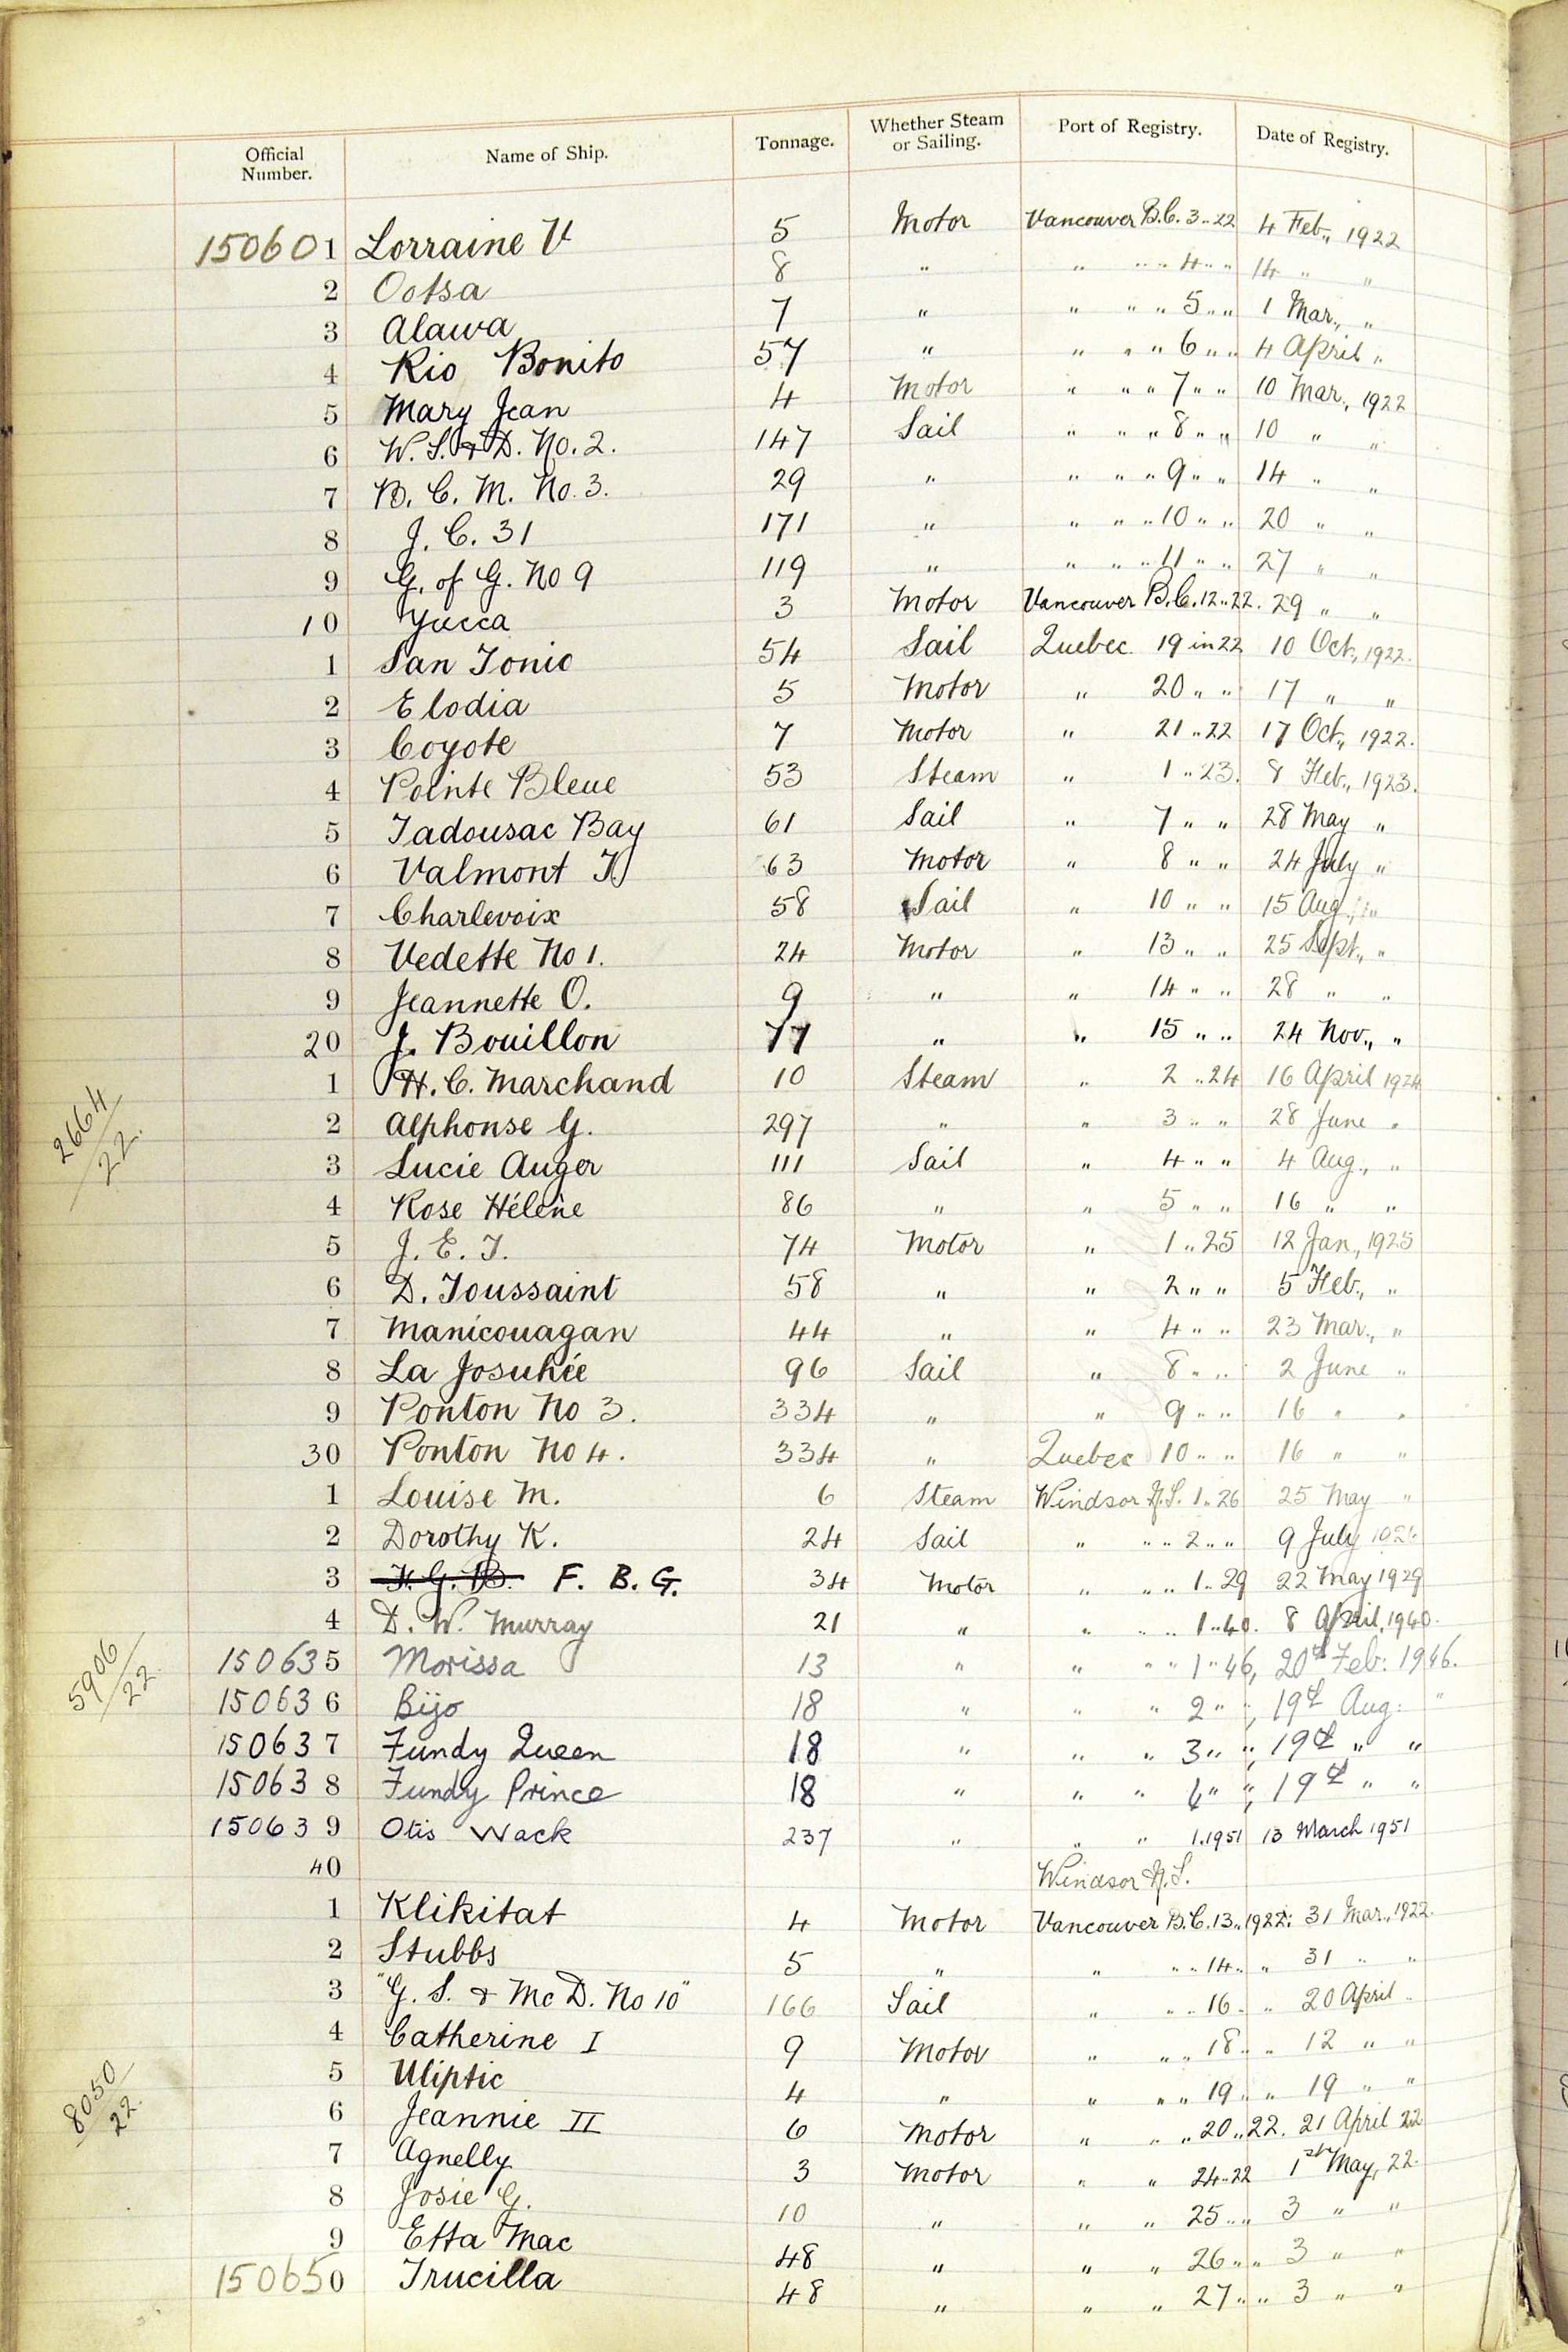 Official Number. Name of Ship. Tonnage. Whether Steam or Sailing. Port of Registry. Date of Registry.
150601 Lorraine V 5 Motor Vancouver B.C. 3 „ 22 4 Feb., 1922
2 Ootsa 8 „ „ „ „ 4 „ „ 14 „ „
3 Alawa 7 „ „ „ „ 5 „ „ 1 Mar., „
4 Rio Bonito 57 „ „ „ „ 6 „ „ 4 April „
5 Mary Jean 4 Motor „ „ „ 7 „ „ 10 Mar., 1922
6 W. S. & D. No. 2. 147 Sail „ „ „ 8 „ „ 10 „ „
7 B. C. M. No. 3. 29 „ „ „ „ 9 „ „ 14 „ „
8 J. C. 31 171 „ „ „ „ 10 „ „ 20 „ „
9 G. of G. No 9 119 „ „ „ „ 11 „ „ 27 „ „
10 Yucca 3 Motor Vancouver B.C. 12 „ 22. 29 „ „
1 San Tonio 54 Sail Quebec 19 in 22 10 Oct., 1922.
2 Elodia 5 Motor „ 20 „ „ 17 „ „
3 Coyote 7 Motor „ 21 „ 22 17 Oct., 1922.
4 Pointe Bleue 53 Steam „ 1 „ 23. 8 Feb., 1923.
5 Tadousac Bay 61 Sail „ 7 „ „ 28 May „
6 Valmont T. 63 Motor „ 8 „ „ 24 July „
7 Charlevoix 58 Sail „ 10 „ „ 15 Aug., „
8 Vedette No 1. 24 Motor „ 13 „ „ 25 Sept., „
9 Jeannette O. 9 „ „ 14 „ „ 28 „ „
20 J. Bouillon „ „ 15 „ „ 24 Nov., „
1 H. C. Marchand 10 Steam „ 2 „ 24 16 April 1924
2664/22.
2 Alphonse G. 297 „ „ 3 „ „ 28 June „
3 Lucie Auger 111 Sail „ 4 „ „ 4 Aug., „
4 Rose Hélène 86 „ „ 5 „ „ 16 „ „
5 J. E. T. 74 Motor „ 1 „ 25 12 Jan., 1925
6 D. Toussaint 58 „ „ 2 „ „ 5 Feb., „
7 Manicouagan 44 „ „ 4 „ „ 23 Mar., „
8 La 96 Sail „ 8 „ „ 2 June „
9 Ponton No 3. 334 „ „ 9 „ „ 16 „ „
30 Ponton No 4. 334 „ Quebec 10 „ „ 16 „ „
1 Louise M. 6 Steam Windsor N.S. 1 „ 26 25 May „
2 Dorothy K. 24 Sail „ „ „ 2 „ „ 9 July 1926
3 F. B. G. 34 Motor „ „ „ 1 „ 29 22 May 1929
4 D. W. Murray 21 „ „ „ „ 1 „ 40. 8 April, 1940.
150635 Morissa 13 „ „ „ „ 1 „ 46, 20th Feb: 1946.
5906/22
150636 Bijo 18 „ „ „ 2 „ „, 19th Aug: „
150637 Fundy Queen 18 „ „ „ 3 „ „, 19th „ „
150638 Fundy Prince 18 „ „ „ 4 „ „, 19th „ „
150639 Otis Wack 237 „ „ „ 1.1951 13 March 1951
40 Windsor N.S.
1 Klikitat 4 Motor Vancouver B.C. 13 „ 1922: 31 Mar., 1922.
2 Stubbs 5 „ „ „ „ 14 „ „ 31 „ „
3 "G. S. & Mc D. No 10" 166 Sail „ „ „ 16 „ „ 20 April „
4 Catherine I 9 Motor „ „ „ 18 „ „ 12 „ „
5 Uliptic 4 „ „ „ „ 19 „ „ 19 „ „
8050/22.
6 Jeannie II 6 Motor „ „ „ 20 „ 22. 21 April 22
7 Agnelly 3 Motor „ „ 24 „ 22 1st May, 22.
8 Josie G. 10 „ „ „ 25 „ „ 3 „ „
9 Etta Mac 48 „ „ „ 26 „ „ 3 „ „
150650 Trucilla 48 „ „ „ 27 „ „ 3 „ „